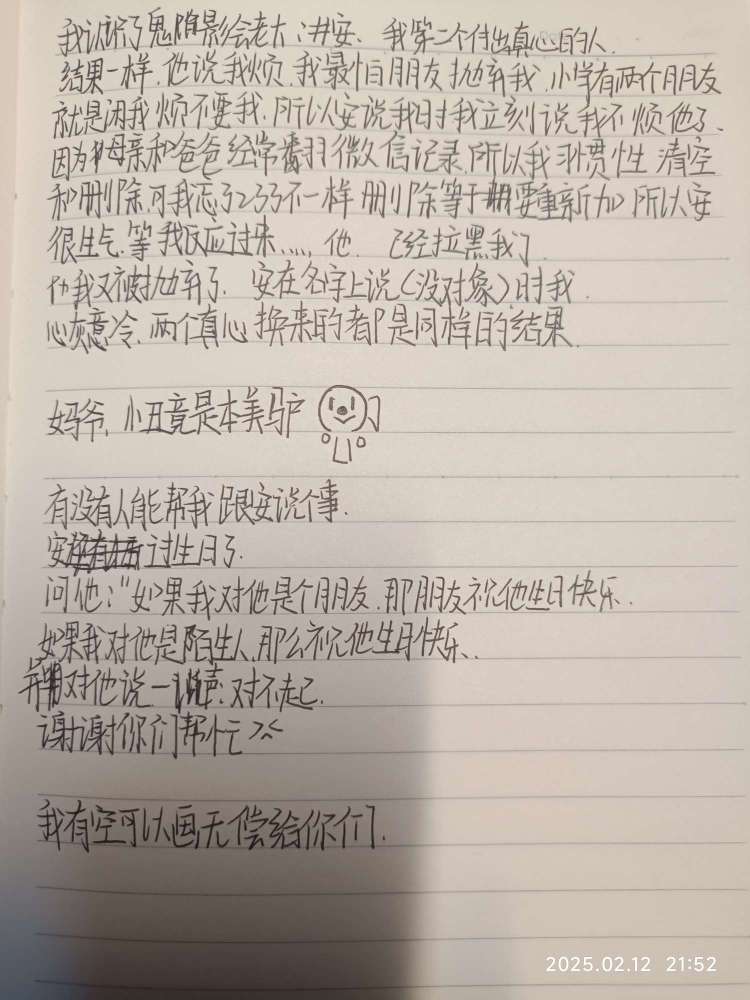 我认识了鬼阴影会老大:洪安、我第二个付出真心的人.
结果一样.他说我烦.我最怕朋友抛弃我.小学有两个朋友
就是闲我烦不要我.所以安说我时我立刻说我不烦他了.
因为母亲和爸爸经常翻微信记录.所以我习惯性清空
和删除.可我忘了233不一样 删除等于要重新加 所以安
很生气.等我反应过来....,他.已经拉黑我了
我又被抛弃了.安在名字上说(没对象)时我.
心灰意冷.两个真心换来的都是同样的结果.
妈爷,小丑竟是本美驴
有没有人能帮我跟安说个事.
安过生日了.
问他:"如果我对他是个朋友.那朋友祝他生日快乐.
如果我对他是陌生人.那么祝他生日快乐.
并对他说一声:对不起.
谢谢你们帮忙><
我有空可以画无偿给你们.
2025.02.12 21:52